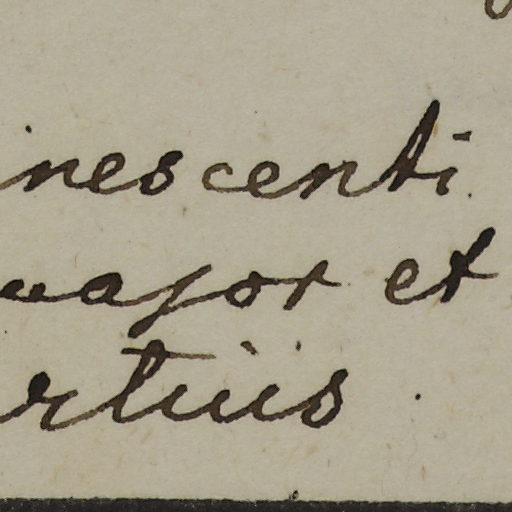 inescenti
major et
rtiis.